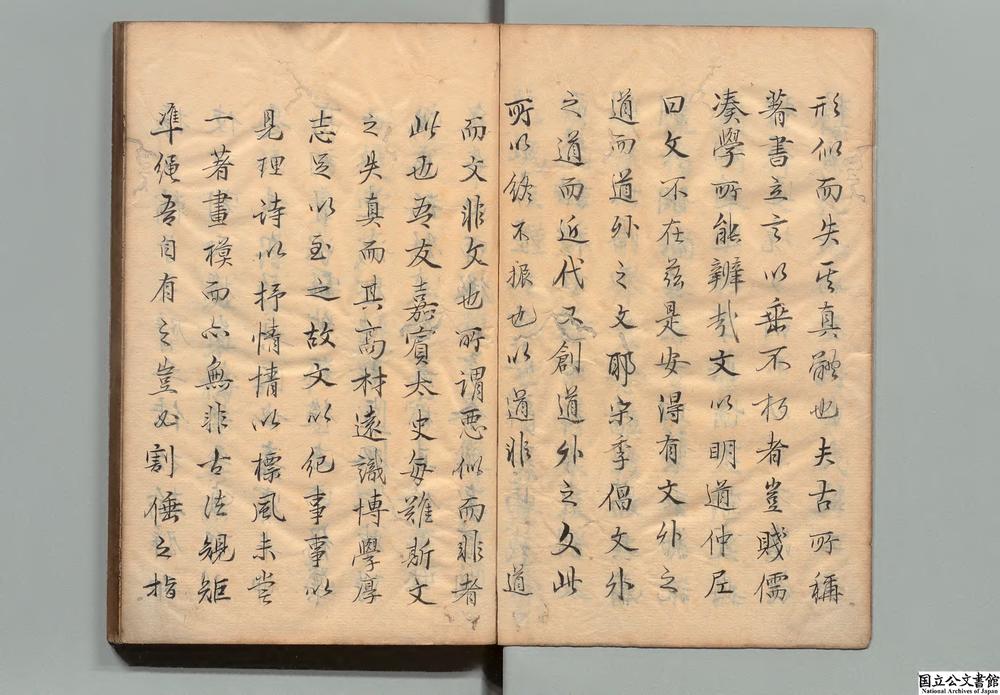 形似而失其真故也夫古所稱
著書立言以垂不朽者豈賤儒
湊學所能辨哉文以明道仲尼
曰文不在茲是安得有文外之
道而道外之文耶宋季倡文外
之道而近代又創道外之文此
所以終不振也以道非道
而文非文也所謂惡似而非者
此也吾友嘉賓太史每難斯文
之失真而其高材遠識博學厚
志足以至之故文以紀事事以
見理詩以抒情情以標風未嘗
一著畫模而亦無非古法規矩
準繩吾自有之豈必割倕之指
国立公文書館
National Archives of Japan